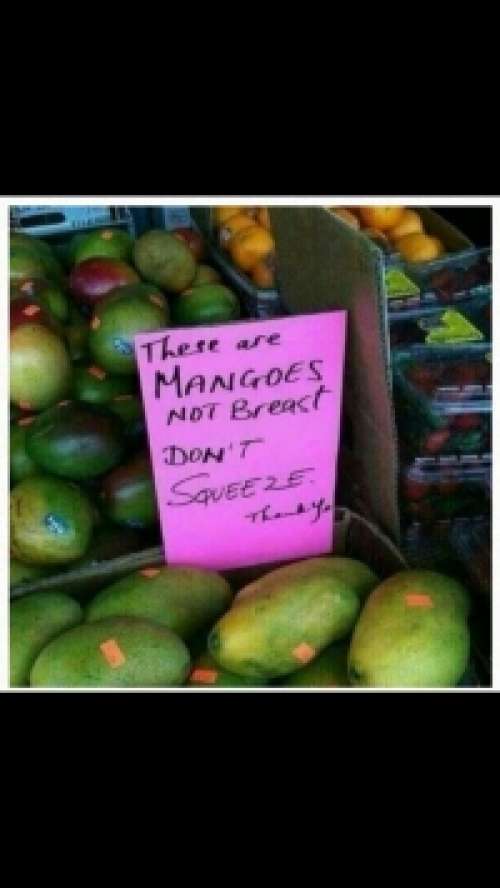 These are
MANGOES
NOT Breast
DON'T
SQUEEZE.
Thank You